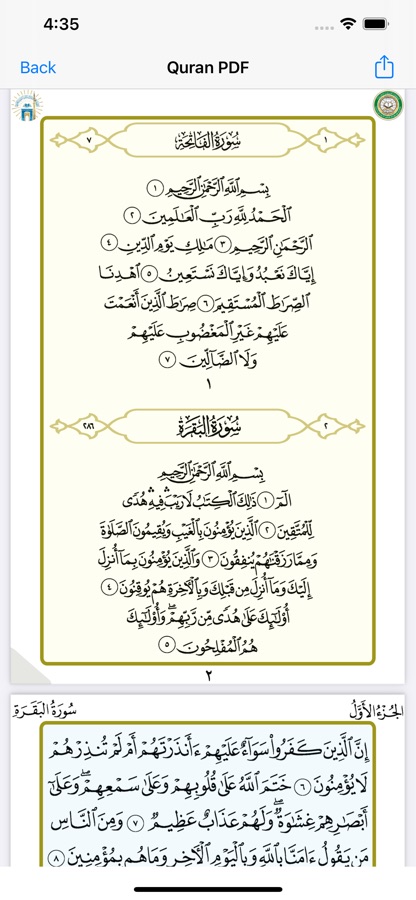 4:35
Back
Quran PDF
٧ سُورَةُ الفَاتِحَةِ ١
بِسْمِ ٱللَّهِ ٱلرَّحْمَٰنِ ٱلرَّحِيمِ ١
ٱلْحَمْدُ لِلَّهِ رَبِّ ٱلْعَٰلَمِينَ ٢
ٱلرَّحْمَٰنِ ٱلرَّحِيمِ ٣ مَٰلِكِ يَوْمِ ٱلدِّينِ ٤
إِيَّاكَ نَعْبُدُ وَإِيَّاكَ نَسْتَعِينُ ٥ ٱهْدِنَا
ٱلصِّرَٰطَ ٱلْمُسْتَقِيمَ ٦ صِرَٰطَ ٱلَّذِينَ أَنْعَمْتَ
عَلَيْهِمْ غَيْرِ ٱلْمَغْضُوبِ عَلَيْهِمْ
وَلَا ٱلضَّآلِّينَ ٧
١
٢٨٦ سُورَةُ البَقَرَةِ ٢
بِسْمِ ٱللَّهِ ٱلرَّحْمَٰنِ ٱلرَّحِيمِ
الٓمٓ ١ ذَٰلِكَ ٱلْكِتَٰبُ لَا رَيْبَۛ فِيهِۛ هُدًى
لِّلْمُتَّقِينَ ٢ ٱلَّذِينَ يُؤْمِنُونَ بِٱلْغَيْبِ وَيُقِيمُونَ ٱلصَّلَوٰةَ
وَمِمَّا رَزَقْنَٰهُمْ يُنفِقُونَ ٣ وَٱلَّذِينَ يُؤْمِنُونَ بِمَآ أُنزِلَ
إِلَيْكَ وَمَآ أُنزِلَ مِن قَبْلِكَ وَبِٱلْأٓخِرَةِ هُمْ يُوقِنُونَ ٤
أُو۟لَٰٓئِكَ عَلَىٰ هُدًى مِّن رَّبِّهِمْۖ وَأُو۟لَٰٓئِكَ
هُمُ ٱلْمُفْلِحُونَ ٥
٢
الجُزْءُ الأَوَّلُ سُورَةُ البَقَرَةِ
إِنَّ ٱلَّذِينَ كَفَرُوا۟ سَوَآءٌ عَلَيْهِمْ ءَأَنذَرْتَهُمْ أَمْ لَمْ تُنذِرْهُمْ
لَا يُؤْمِنُونَ ٦ خَتَمَ ٱللَّهُ عَلَىٰ قُلُوبِهِمْ وَعَلَىٰ سَمْعِهِمْۖ وَعَلَىٰٓ
أَبْصَٰرِهِمْ غِشَٰوَةٌۖ وَلَهُمْ عَذَابٌ عَظِيمٌ ٧ وَمِنَ ٱلنَّاسِ
مَن يَقُولُ ءَامَنَّا بِٱللَّهِ وَبِٱلْيَوْمِ ٱلْأٓخِرِ وَمَا هُم بِمُؤْمِنِينَ ٨